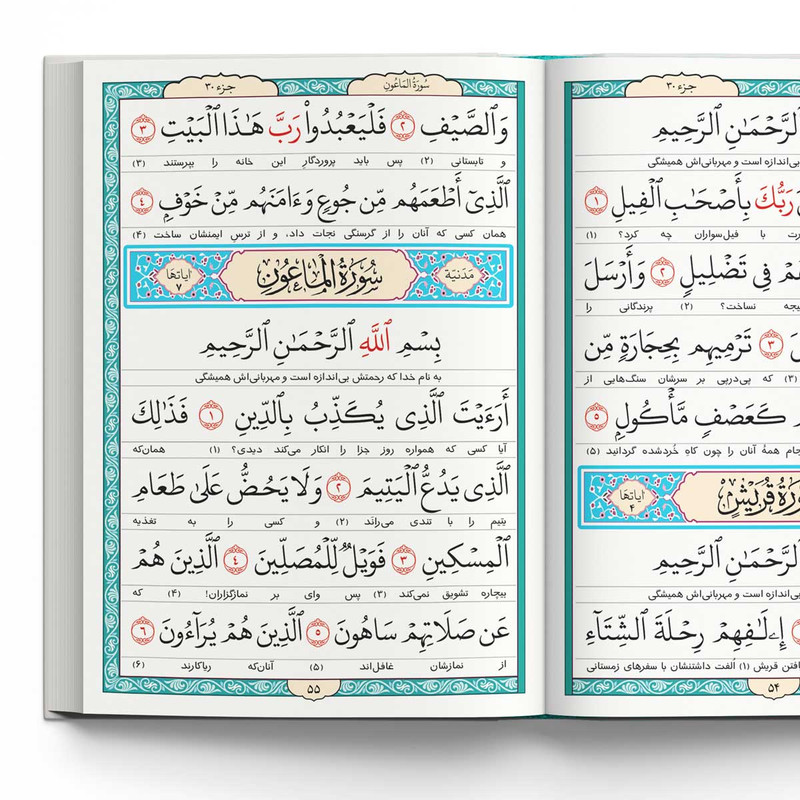 جزء ۳۰
ٱلرَّحْمَٰنِ ٱلرَّحِيمِ
است و مهربانی‌اش همیشگی
رَبُّكَ بِأَصْحَٰبِ ٱلْفِيلِ ۱
با فیل‌سواران چه کرد؟ (۱)
فِي تَضْلِيلٍ ۲ وَأَرْسَلَ
نساخت؟ (۲) پرندگانی را
۳ تَرْمِيهِم بِحِجَارَةٍ مِّن
(۳) که پی‌درپی بر سرشان سنگ‌هایی از
كَعَصْفٍ مَّأْكُولٍ ۵
همهٔ آنان را چون کاهِ خُردشده گردانید (۵)
قُرَيْشٍ آیاتها ۴
ٱلرَّحْمَٰنِ ٱلرَّحِيمِ
است و مهربانی‌اش همیشگی
إِۦلَٰفِهِمْ رِحْلَةَ ٱلشِّتَآءِ
قریش (۱) اُلفت داشتنشان با سفرهای زمستانی
۵۴
سُورَةُ المَاعُونِ جزء ۳۰
وَٱلصَّيْفِ ۲ فَلْيَعْبُدُوا۟ رَبَّ هَٰذَا ٱلْبَيْتِ ۳
و تابستانی (۲) پس باید پروردگارِ این خانه را بپرستند (۳)
ٱلَّذِىٓ أَطْعَمَهُم مِّن جُوعٍ وَءَامَنَهُم مِّنْ خَوْفٍۭ ۴
همان کسی که آنان را از گرسنگی نجات داد، و از ترس ایمنشان ساخت (۴)
مَدَنيّة سُورَةُ المَاعُونِ آیاتها ۷
بِسْمِ ٱللَّهِ ٱلرَّحْمَٰنِ ٱلرَّحِيمِ
به نام خدا که رحمتش بی‌اندازه است و مهربانی‌اش همیشگی
أَرَءَيْتَ ٱلَّذِى يُكَذِّبُ بِٱلدِّينِ ۱ فَذَٰلِكَ
آیا کسی که همواره روز جزا را انکار می‌کند دیدی؟ (۱) همان‌که
ٱلَّذِى يَدُعُّ ٱلْيَتِيمَ ۲ وَلَا يَحُضُّ عَلَىٰ طَعَامِ
یتیم را با تندی می‌راند (۲) و کسی را به تغذیه
ٱلْمِسْكِينِ ۳ فَوَيْلٌ لِّلْمُصَلِّينَ ۴ ٱلَّذِينَ هُمْ
بیچاره تشویق نمی‌کند (۳) پس وای بر نمازگزاران! (۴) که
عَن صَلَاتِهِمْ سَاهُونَ ۵ ٱلَّذِينَ هُمْ يُرَآءُونَ ۶
از نمازشان غافل‌اند (۵) آنان‌که ریاکارند (۶)
۵۵